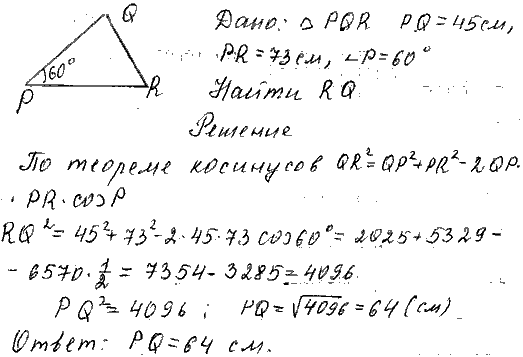 Q
60°
P
R
Дано: △ PQR PQ = 45 см,
PR = 73 см, ∠P = 60°
Найти RQ
Решение
По теореме косинусов QR² = QP² + PR² - 2 QP·
· PR · cos P
RQ² = 45² + 73² - 2 · 45 · 73 cos 60° = 2025 + 5329 -
- 6570 · 1/2 = 7354 - 3285 = 4096
PQ² = 4096 ; PQ = √4096 = 64 (см)
Ответ: PQ = 64 см.